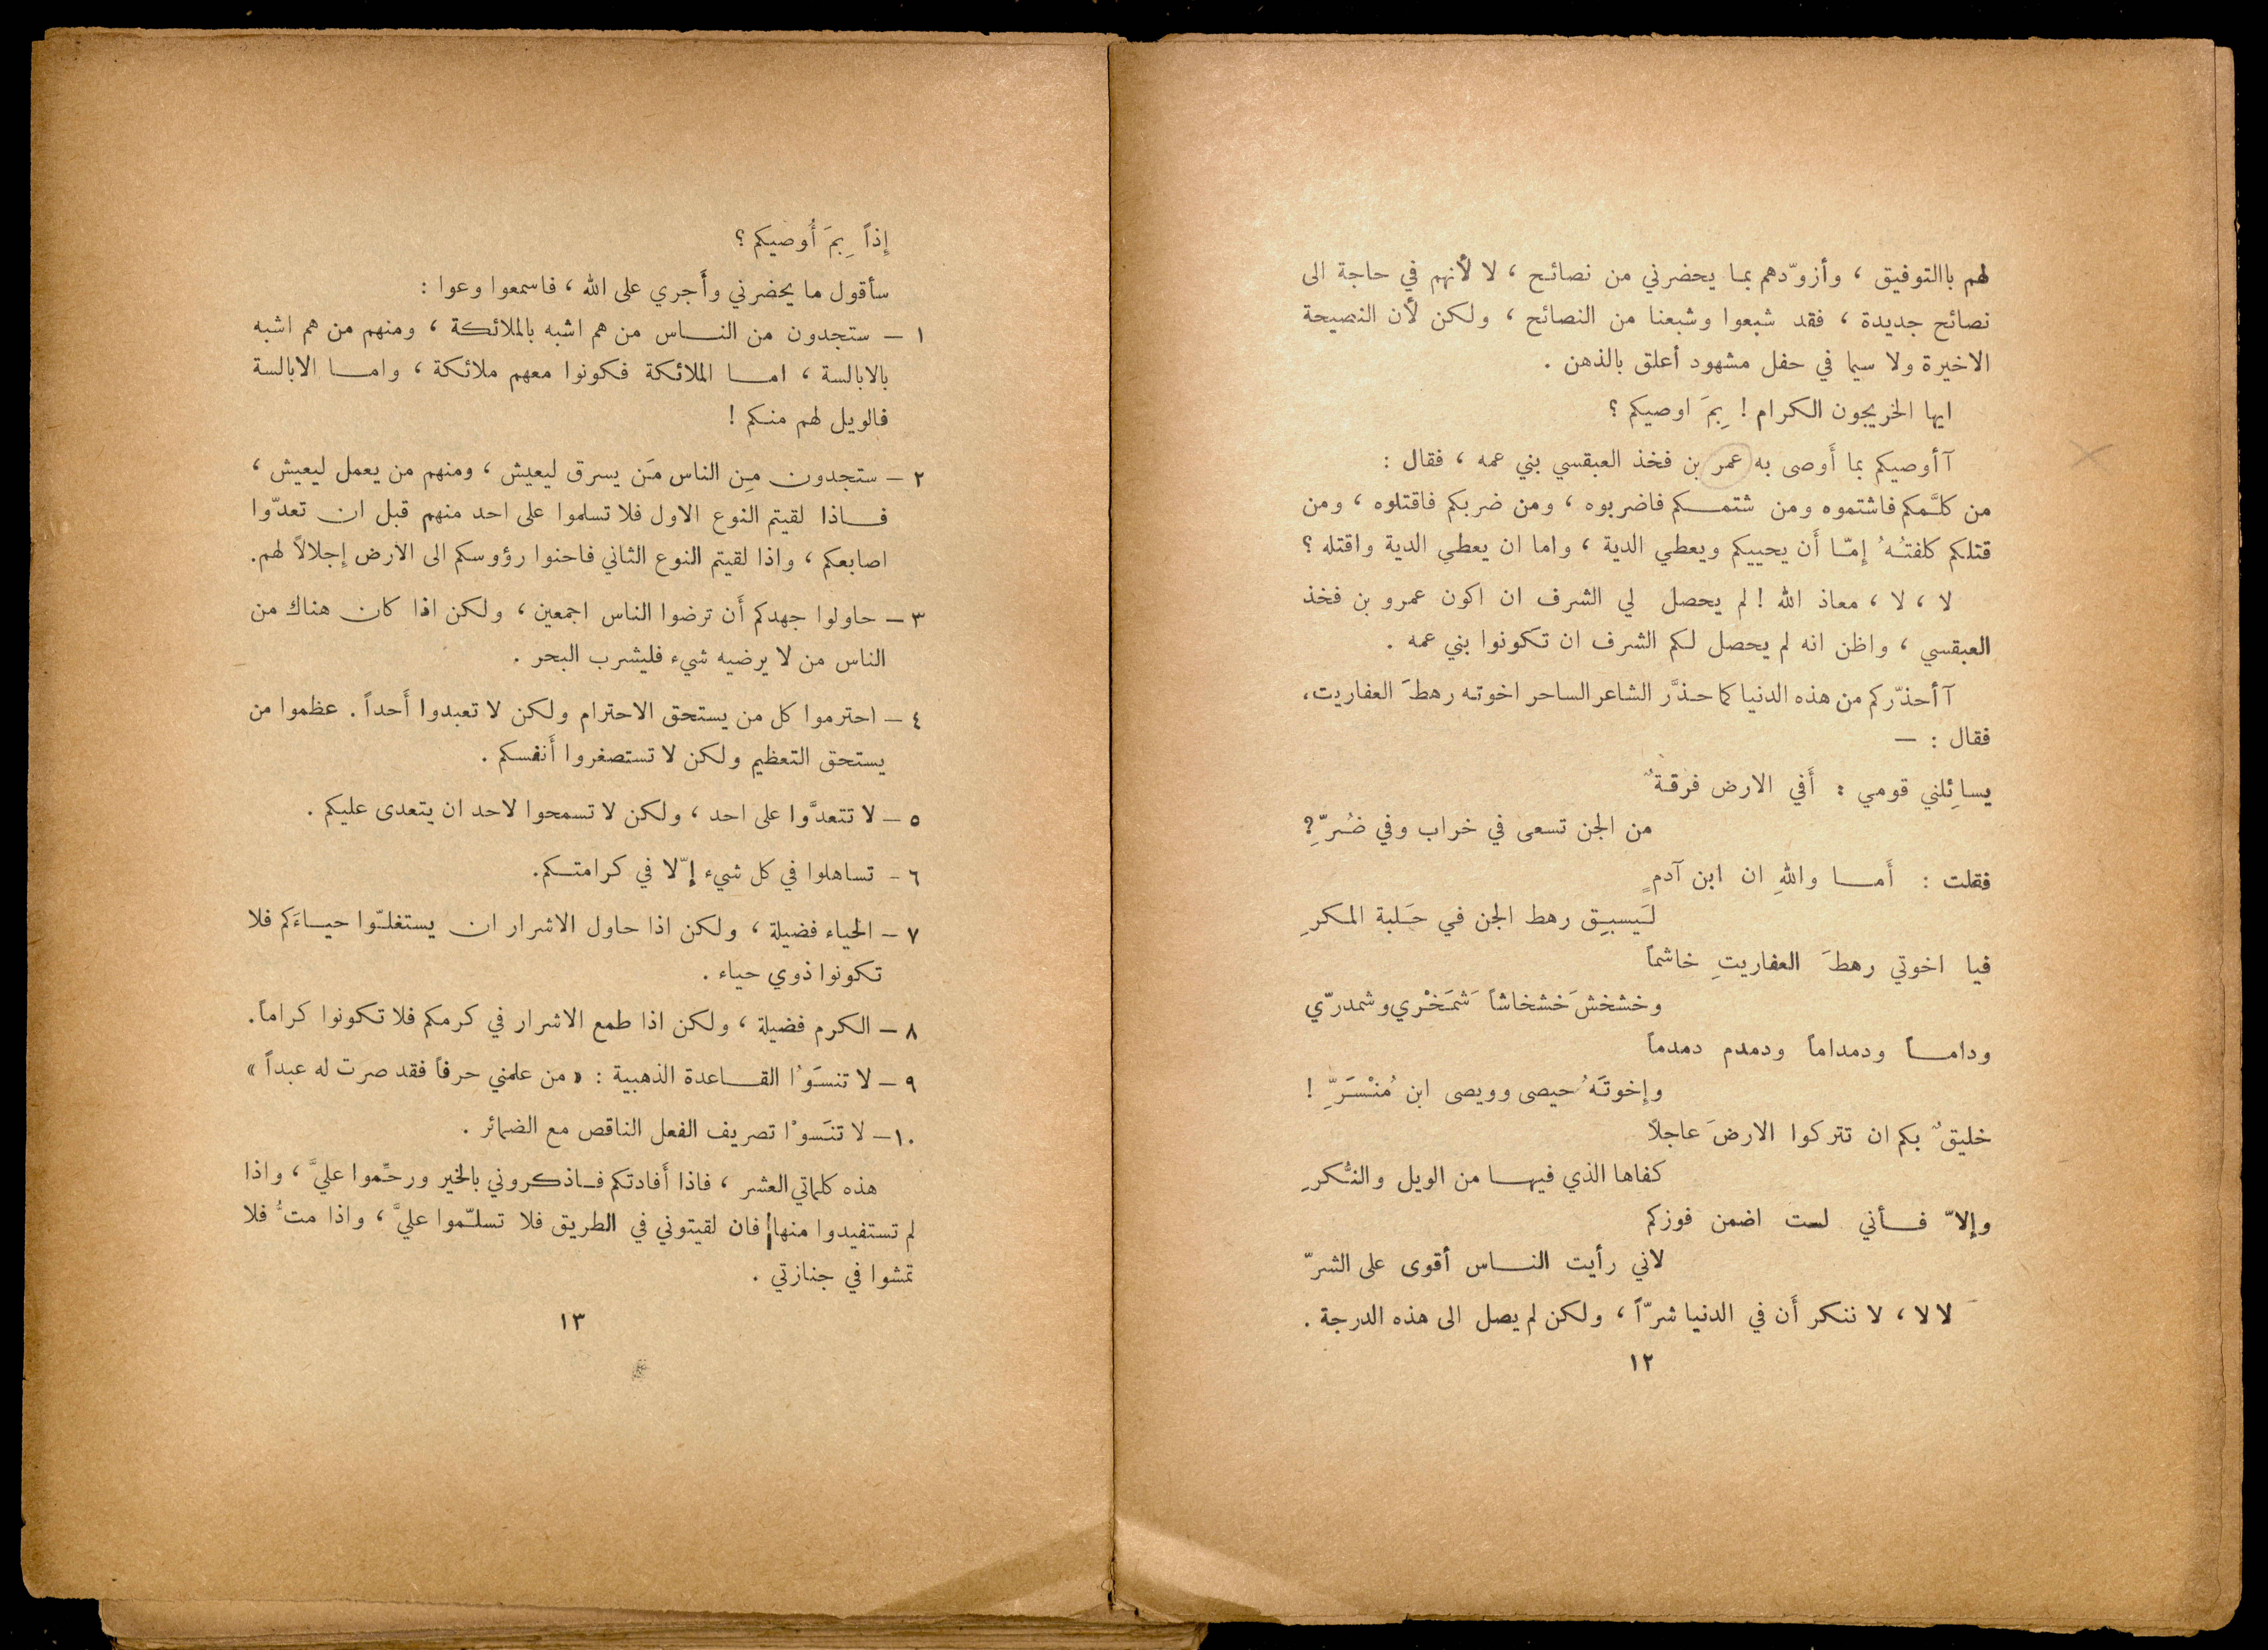 لهم باالتوفيق ، وأزوّدهم بما يحضرني من نصائح ، لا لأنهم في حاجة الى
نصائح جديدة ، فقد شبعوا وشبعنا من النصائح ، ولكن لأن النصيحة
الاخيرة ولا سيما في حفل مشهود أعلق بالذهن .
ايها الخريجون الكرام ! بِمَ اوصيكم ؟
آأوصيكم بما أَوصى به عمر بن فخذ العبقسي بني عمه ، فقال :
من كلَّمكم فاشتموه ومن شتمكم فاضربوه ، ومن ضربكم فاقتلوه ، ومن
قتلكم كلفتُهُ إمّا أَن يحييكم ويعطي الدية ، واما ان يعطي الدية واقتله ؟
لا ، لا ، معاذ الله ! لم يحصل لي الشرف ان اكون عمرو بن فخذ
العبقسي ، واظن انه لم يحصل لكم الشرف ان تكونوا بني عمه .
آأحذّركم من هذه الدنيا كما حذَّر الشاعر الساحر اخوته رهطَ العفاريت،
فقال : —
يسائِلني قومي : أَفي الارض فرقةٌ
من الجن تسعى في خراب وفي ضُرِّ؟
فقلت : أَما واللهِ ان ابن آدمٍ
لَيسبِق رهط الجن في حَلبة المكرِ
فيا اخوتي رهطَ العفاريتِ خاشماً
وخشخشَ خشخاشاً شَمَخْري وشمدرّي
وداماً ودمداماً ودمدم دمدماً
وإخوتَهُ حيصى وويصى ابن مُنْسَرِّ !
خليقٌ بكم ان تتركوا الارضَ عاجلاً
كفاها الذي فيها من الويل والنُّكرِ
وإلاّ فأني لست اضمن فوزكم
لاني رأيت الناس أقوى على الشرّ
لا لا ، لا ننكر أَن في الدنيا شرّاً ، ولكن لم يصل الى هذه الدرجة .
١٢
إِذاً بِمَ أُوصيكم ؟
سأقول ما يحضرني وأَجري على الله ، فاسمعوا وعوا :
١ – ستجدون من الناس من هم اشبه بالملائكة ، ومنهم من هم اشبه
بالابالسة ، اما الملائكة فكونوا معهم ملائكة ، واما الابالسة
فالويل لهم منكم !
٢ – ستجدون مِن الناس مَن يسرق ليعيش ، ومنهم من يعمل ليعيش ،
فاذا لقيتم النوع الاول فلا تسلموا على احد منهم قبل ان تعدّوا
اصابعكم ، واذا لقيتم النوع الثاني فاحنوا رؤوسكم الى الارض إجلالاً لهم.
٣ – حاولوا جهدكم أَن ترضوا الناس اجمعين ، ولكن اذا كان هناك من
الناس من لا يرضيه شيء فليشرب البحر .
٤ – احترموا كل من يستحق الاحترام ولكن لا تعبدوا أَحداً . عظموا من
يستحق التعظيم ولكن لا تستصغروا أَنفسكم .
٥ – لا تتعدَّوا على احد ، ولكن لا تسمحوا لاحد ان يتعدى عليكم .
٦ – تساهلوا في كل شيء إلاّ في كرامتكم.
٧ – الحياء فضيلة ، ولكن اذا حاول الاشرار ان يستغلّوا حياءَكم فلا
تكونوا ذوي حياء .
٨ – الكرم فضيلة ، ولكن اذا طمع الاشرار في كرمكم فلا تكونوا كراماً.
٩ – لا تنسَوْا القاعدة الذهبية : « من علمني حرفاً فقد صرت له عبداً »
١٠ – لا تنَسوْا تصريف الفعل الناقص مع الضمائر .
هذه كلماتي العشر ، فاذا أَفادتكم فاذكروني بالخير ورحِّموا عليَّ ، واذا
لم تستفيدوا منها فان لقيتوني في الطريق فلا تسلّموا عليَّ ، واذا متُّ فلا
تمشوا في جنازتي .
١٣